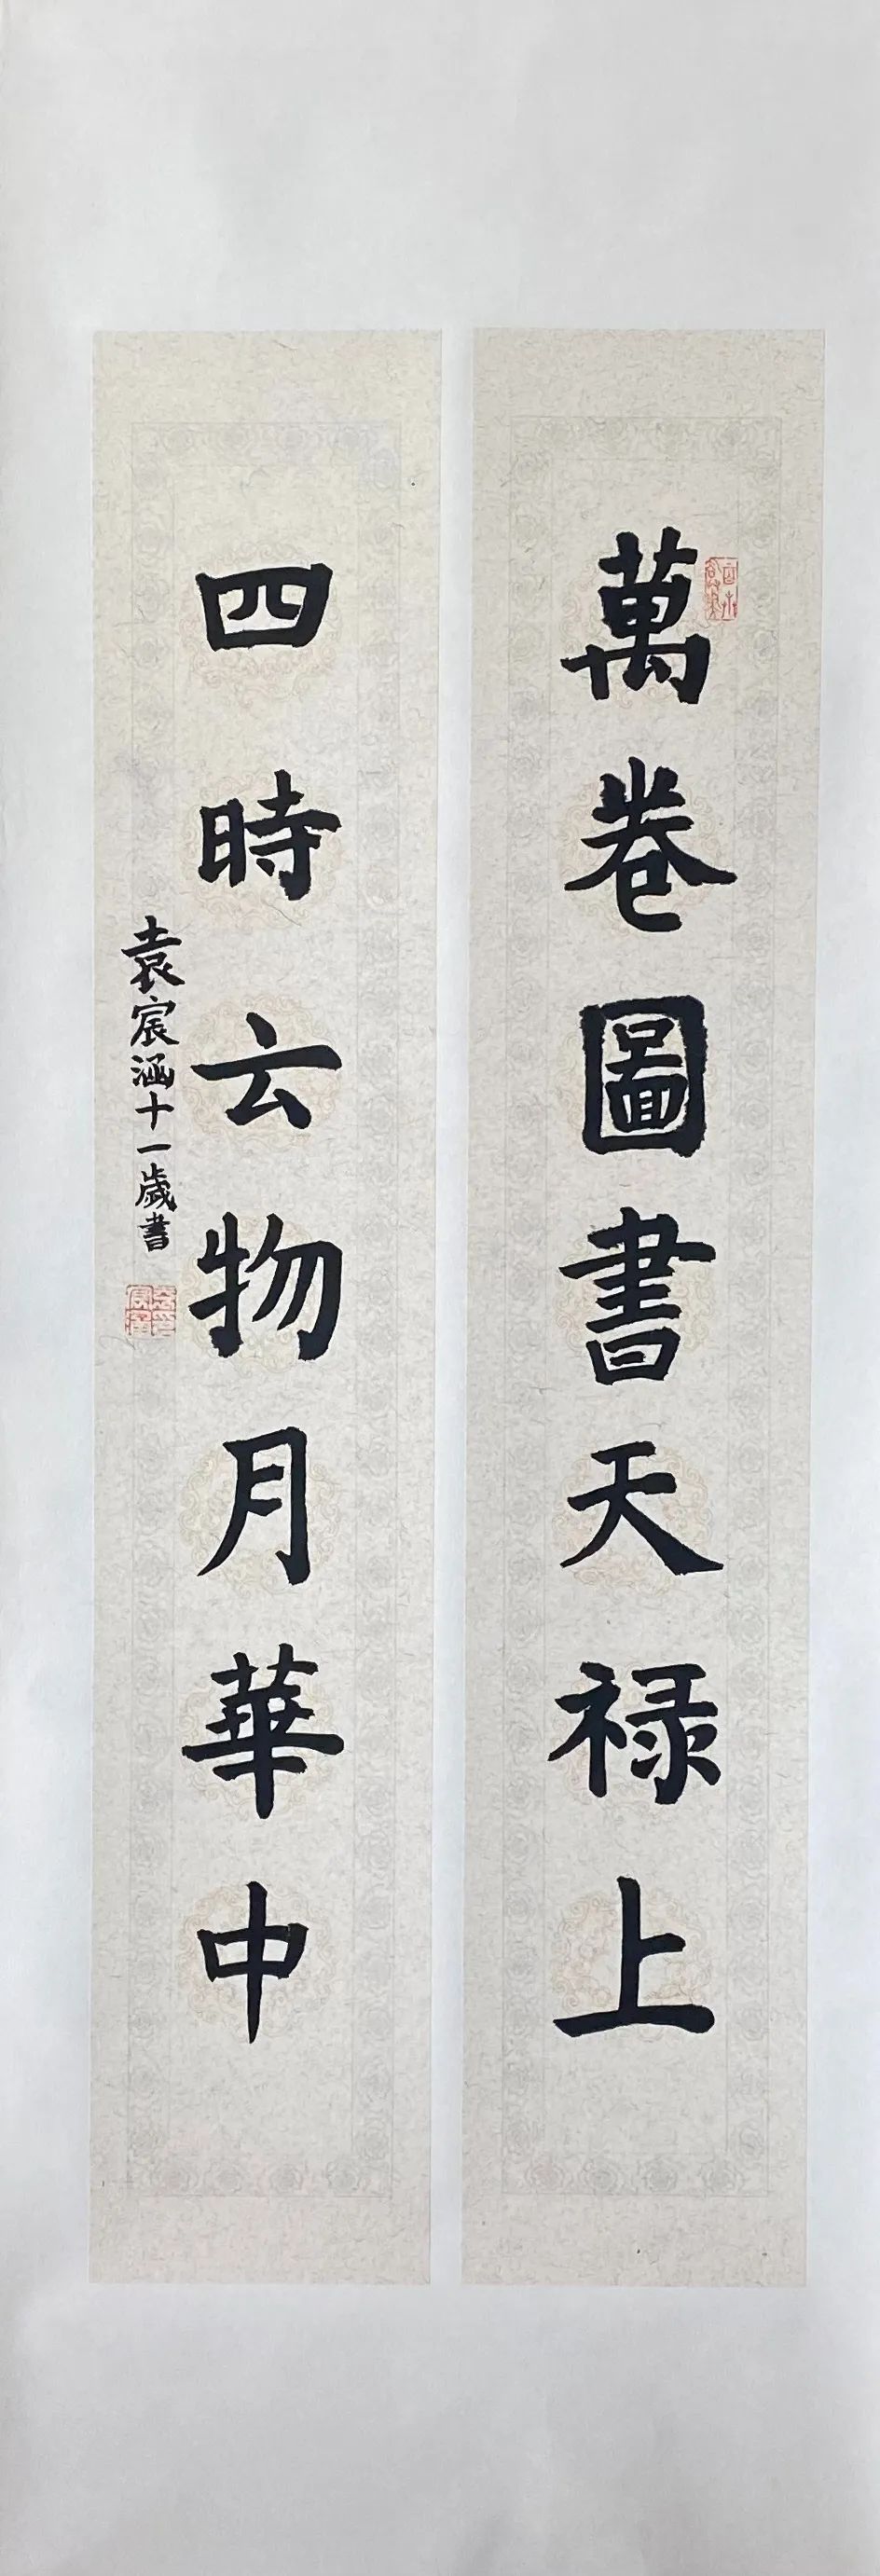 萬卷圖書天禄上
四時云物月華中
袁宸涵十一歲書